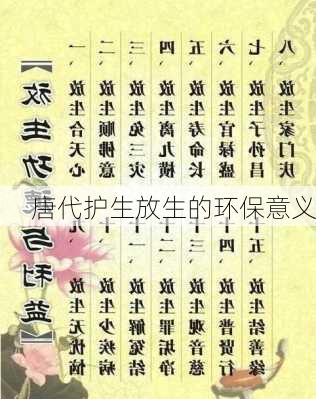 【放生功德与利益】
一、放生合天心
二、放生顺佛意
三、放生免三灾
四、放生离九横
五、放生寿命长
六、放生官禄盛
七、放生子孙昌
八、放生家门庆
唐代护生放生的环保意义
九、放生无忧恼
十、放生少疾病
十一、放生解冤结
十二、放生罪垢净
十三、放生观音慈
十四、放生普贤行
十五、放生结善缘